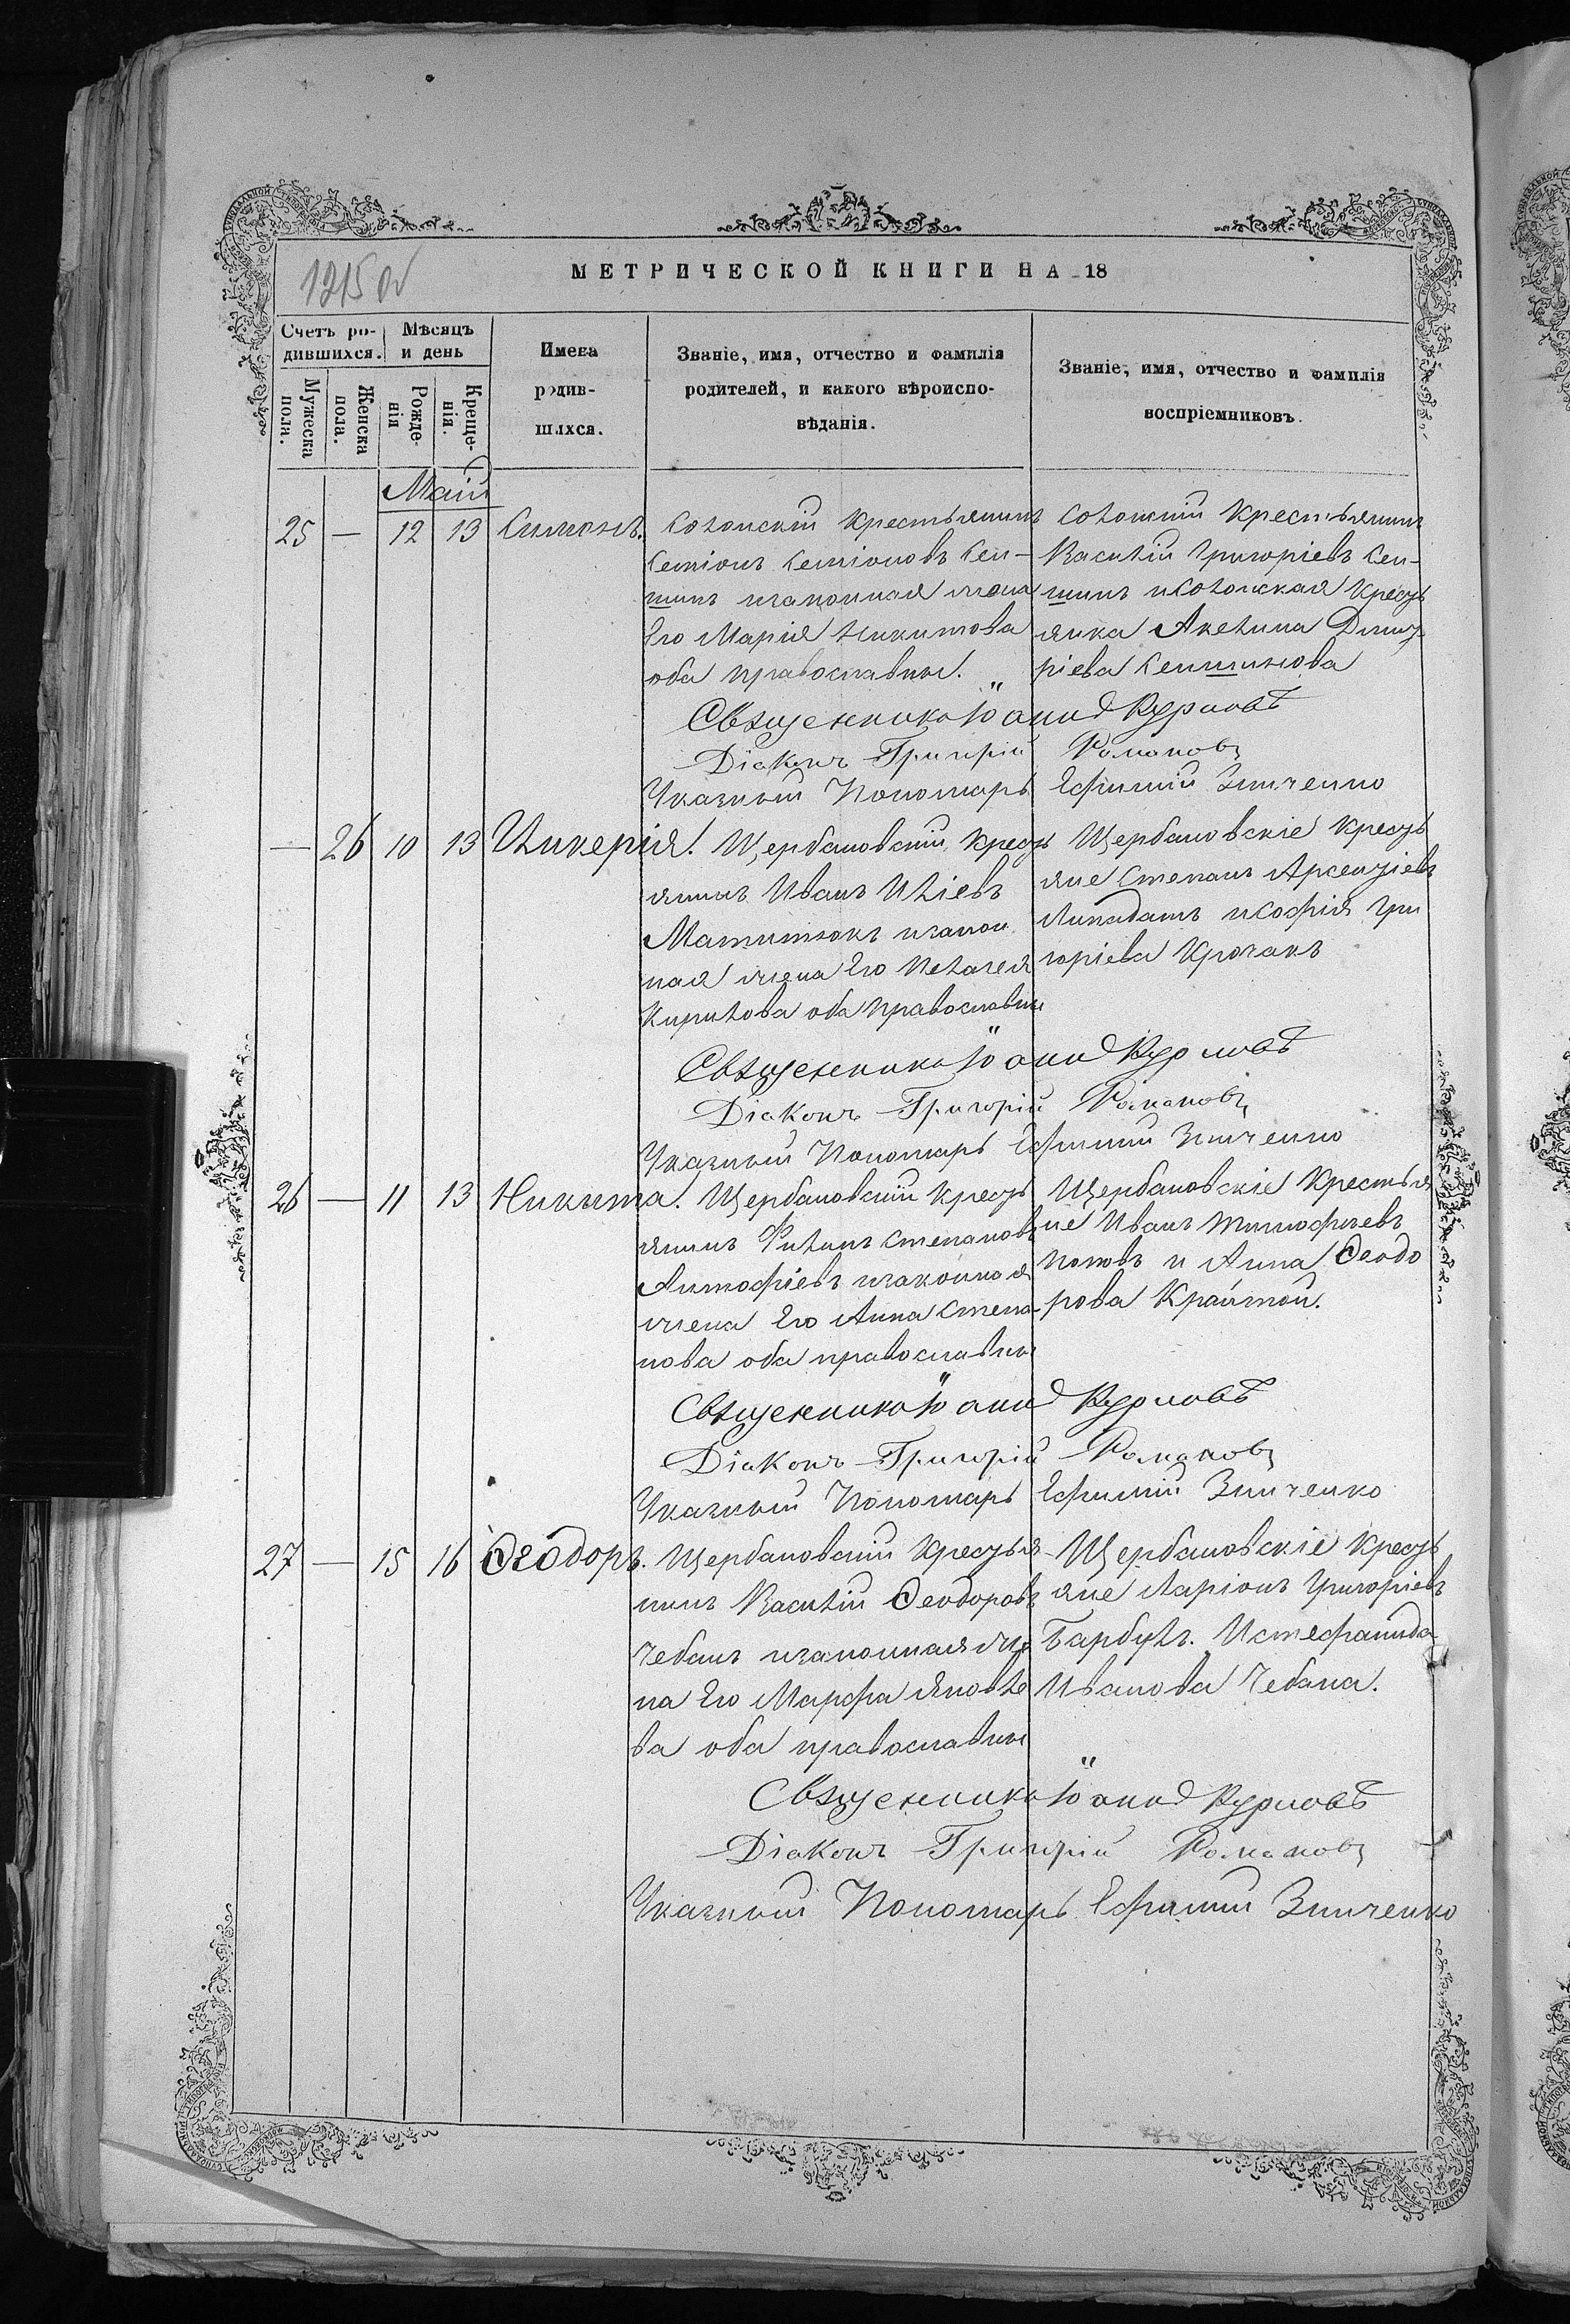 1215 об
МЕТРИЧЕСКОЙ КНИГИ НА 18
Счетъ ро-
дившихся.
Мѣсяцъ
и день
Мужеска
пола.
Женска
пола.
Рожде-
нія
Креще-
нія.
Имена
родив-
шихся.
Званіе, имя, отчество и фамилія
родителей, и какого вѣроиспо-
вѣданія.
Званіе, имя, отчество и фамилія
воспріемниковъ.
Маій
25 — 12 13 Симонъ.
Солонскій Крестьянинъ
Семіонъ Семіоновъ Сен-
шинъ изаконная жена
Его Марія Никитова
оба православны.
Солонскій Крестьянинъ
Василій Григоріевъ Сен-
шинъ иСолонская Крестъ
янка Акелина Димит
ріева Сеншинова
Священникъ Іоанъ Курловъ
Діаконъ Григорій Романовъ
Указный Пономарь Ефимій Зинченко
— 26 10 13 Гликерія.
Щербановскій Кресть
янинъ Иванъ Иліевъ
изакон
ная жена Его Пелагея
Кирилова оба православны
Щербановскіе Кресть
яне Степанъ Арсентіевъ
иСофія Гри
горіева Крочакъ
Священникъ Іоанъ Курловъ
Діаконъ Григорій Романовъ
Указный Пономарь Ефимій Зинченко
26 — 11 13 Никита.
Щербановскій Кресть
янинъ Филипъ Степановъ
Антофіевъ изаконная
жена Его Анна Степа-
нова оба православны
Щербановскіе Крестья
не Иванъ Тимофиевъ
Поповъ и Анна Ѳеодо
рова Крайтой.
Священникъ Іоанъ Курловъ
Діаконъ Григорій Романовъ
Указный Пономарь Ефимій Зинченко
27 — 15 16 Ѳеодоръ.
Щербановскій Крестья-
нинъ Василій Ѳеодоровъ
Чебанъ изаконная же
на Его Марфа Яковле
ва оба православны
Щербановскіе Кресть
яне Ларіонъ Григоріевъ
Барбулъ. Истефанида
Иванова Чебана.
Священникъ Іоанъ Курловъ
Діаконъ Григорій Романовъ
Указный Пономарь Ефимій Зинченко